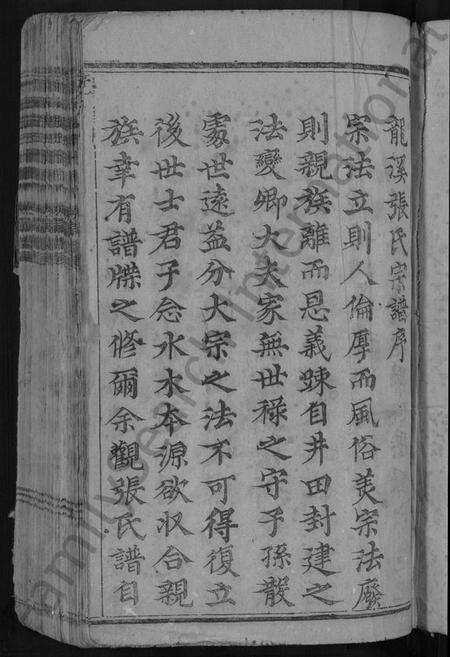 龍溪張氏宗譜序
宗法立則人倫厚而風俗美宗法廢
則親族離而恩義踈自井田封建之
法變卿大夫家無世祿之守子孫散
處世遠益分大宗之法不可得復立
後世士君子念水木本源欲收合親
族幸有譜牒之修爾余觀張氏譜自
FamilySearch International